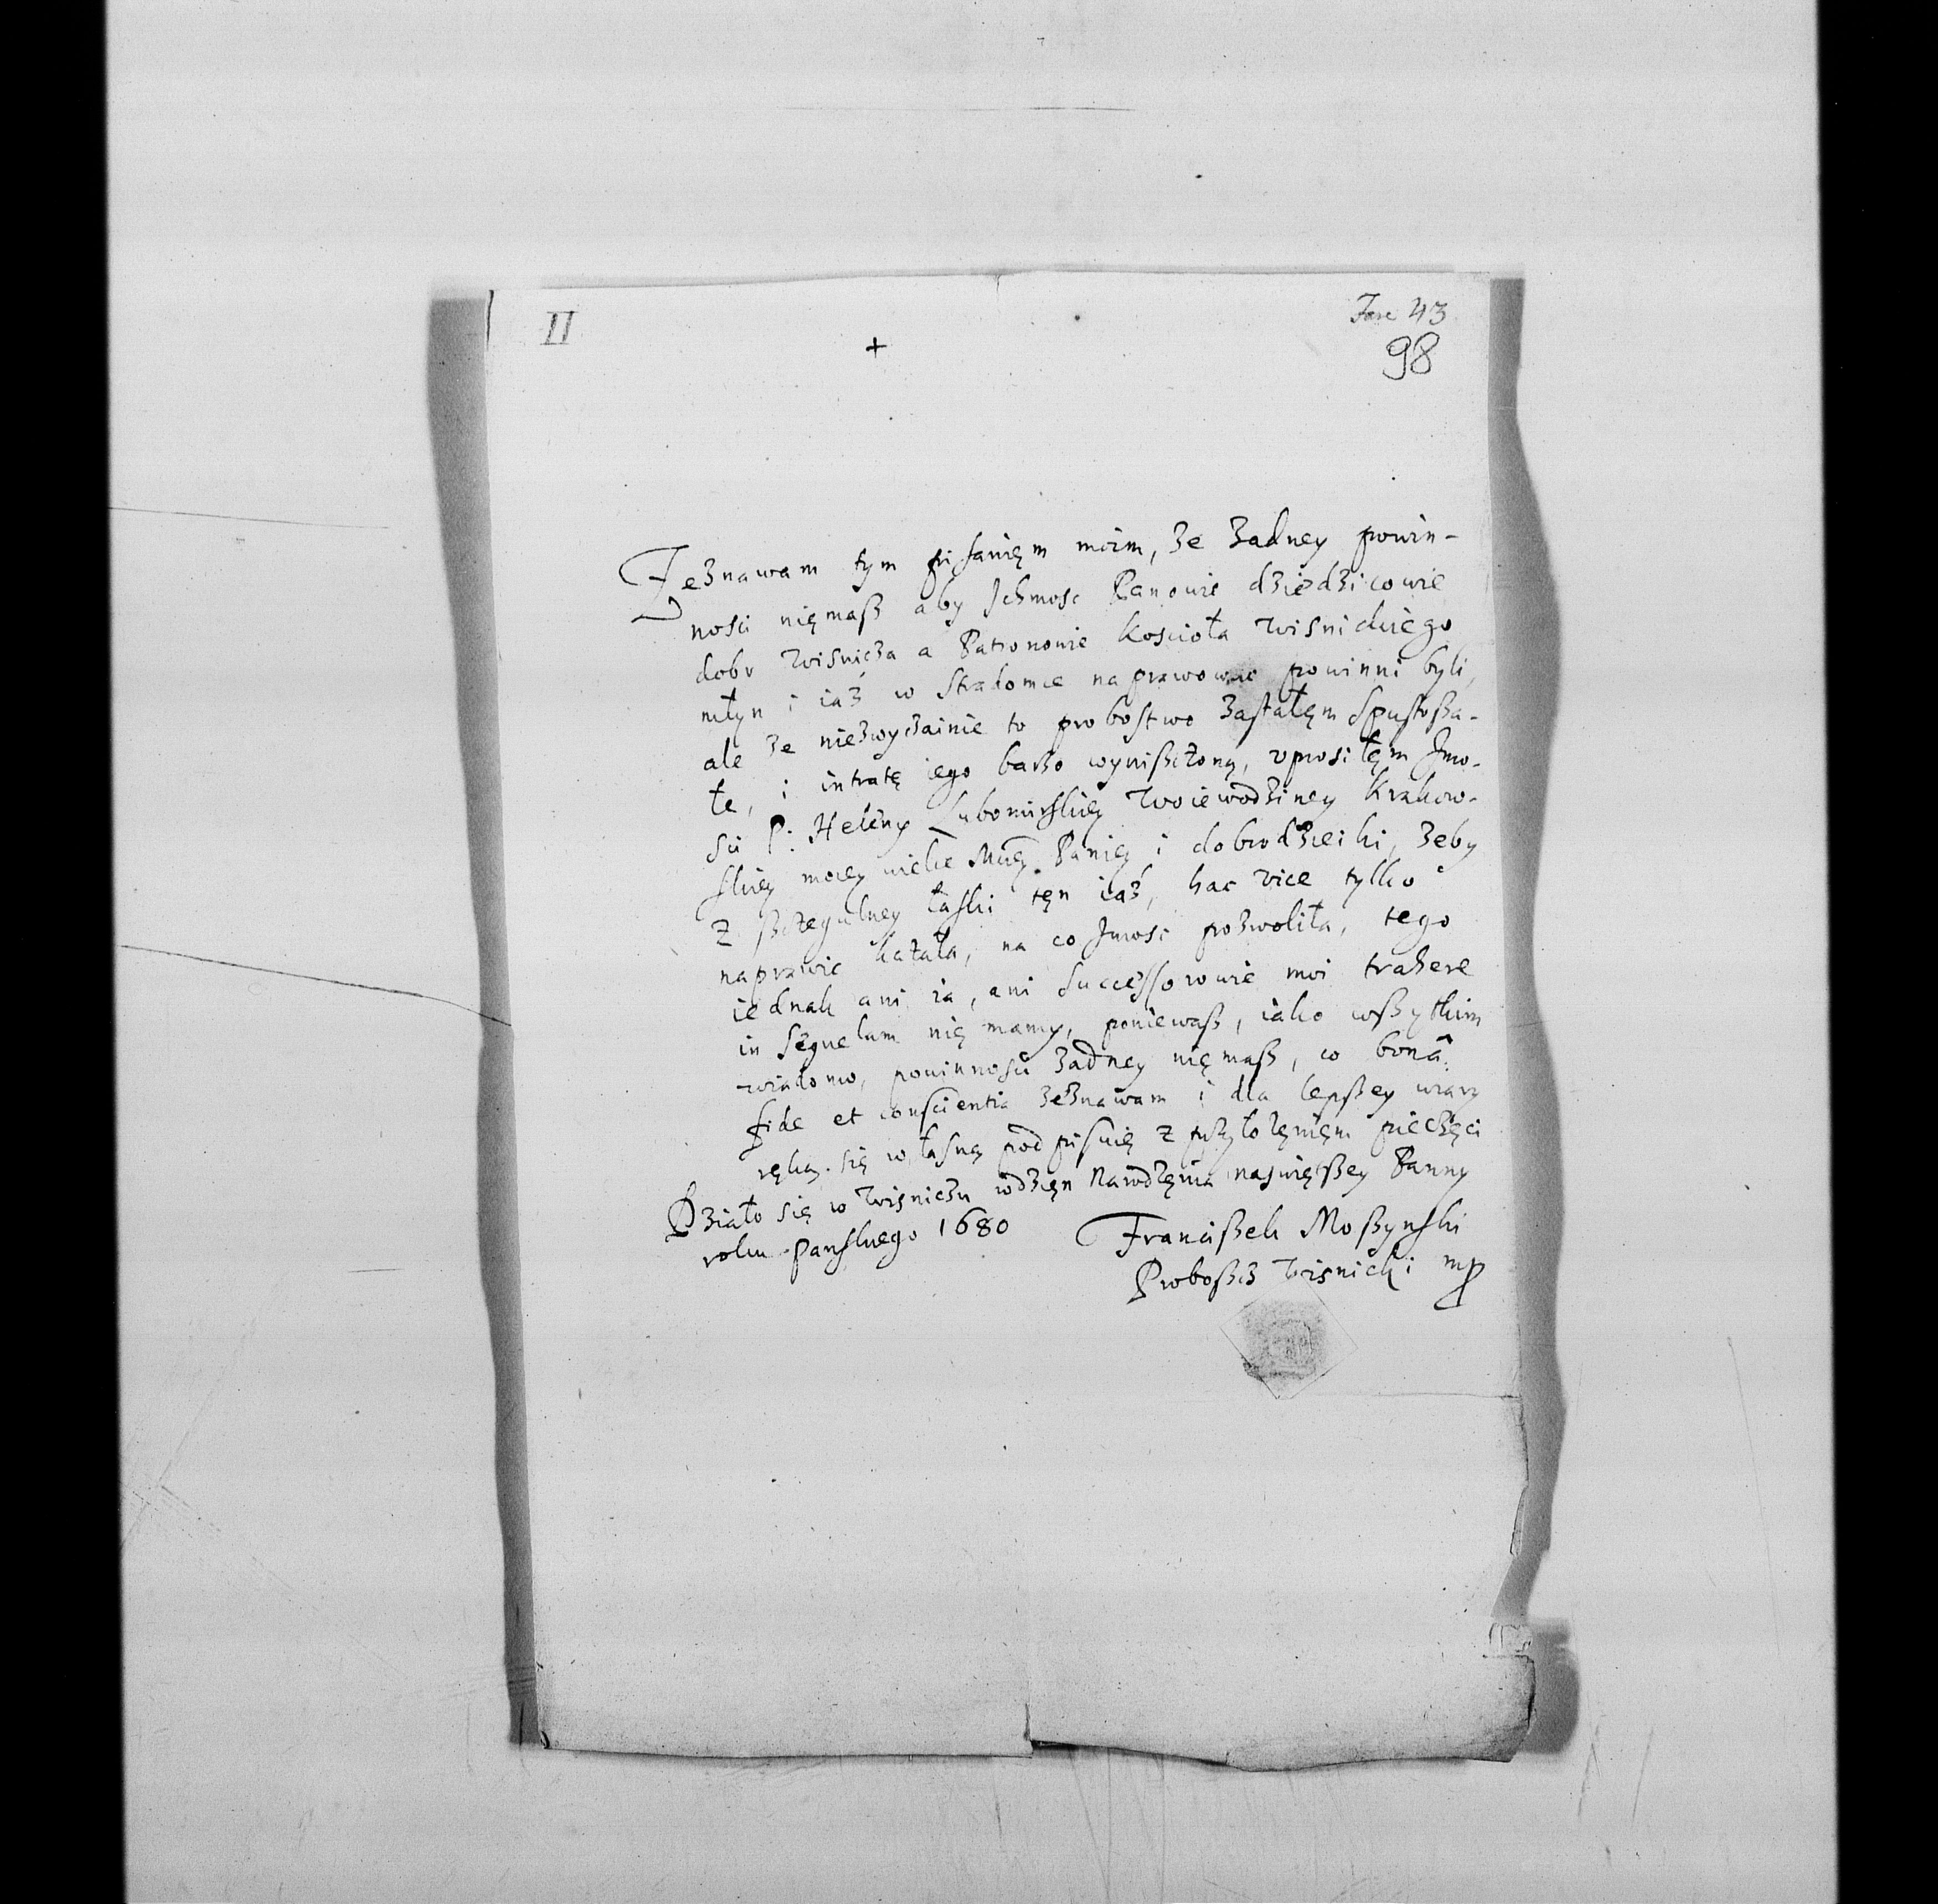 II
+
Fasc 43
98
Zeznawam tym pisanięm moim, ze zadney powin-
nosci nięmasz aby Ichmosc Panowie dziedzicowie
dobr Wisnicza a Patronowie Kosciola Wisnickiego
młyn i iaz w Stradomce naprawowac powinni byli,
ale ze niezwyczainie to probostwo zastałęm spustosza-
łe, i intratę iego barzo wyniszczoną, uprosiłęm Jmo-
sci P: Heleny Lubomirskięy Woiewodziney Krakow-
skięy moięy wielce Mcięy Panięy i dobrodzieiki, zeby
z szczegulney łaski tęn iaz, hac vice tylko
naprawic kazała, na co Jmosc pozwoliła, tego
iednak ani ia, ani successorowie moi trahere
in sequelam nię mamy, poniewasz, iako wszytkim
wiadomo, powinnosci zadney nięmasz, co bonâ
fide et conscientia zeznawam i dla lepszey wiary
ręką się własną podpisuię z przyłozęnięm pieczęci
Działo się w Wisniczu wdzięn Narodzęnia naswiętszey Panny
roku panskiego 1680
Franciszek Moszynski
Proboszcz Wisnicki mp